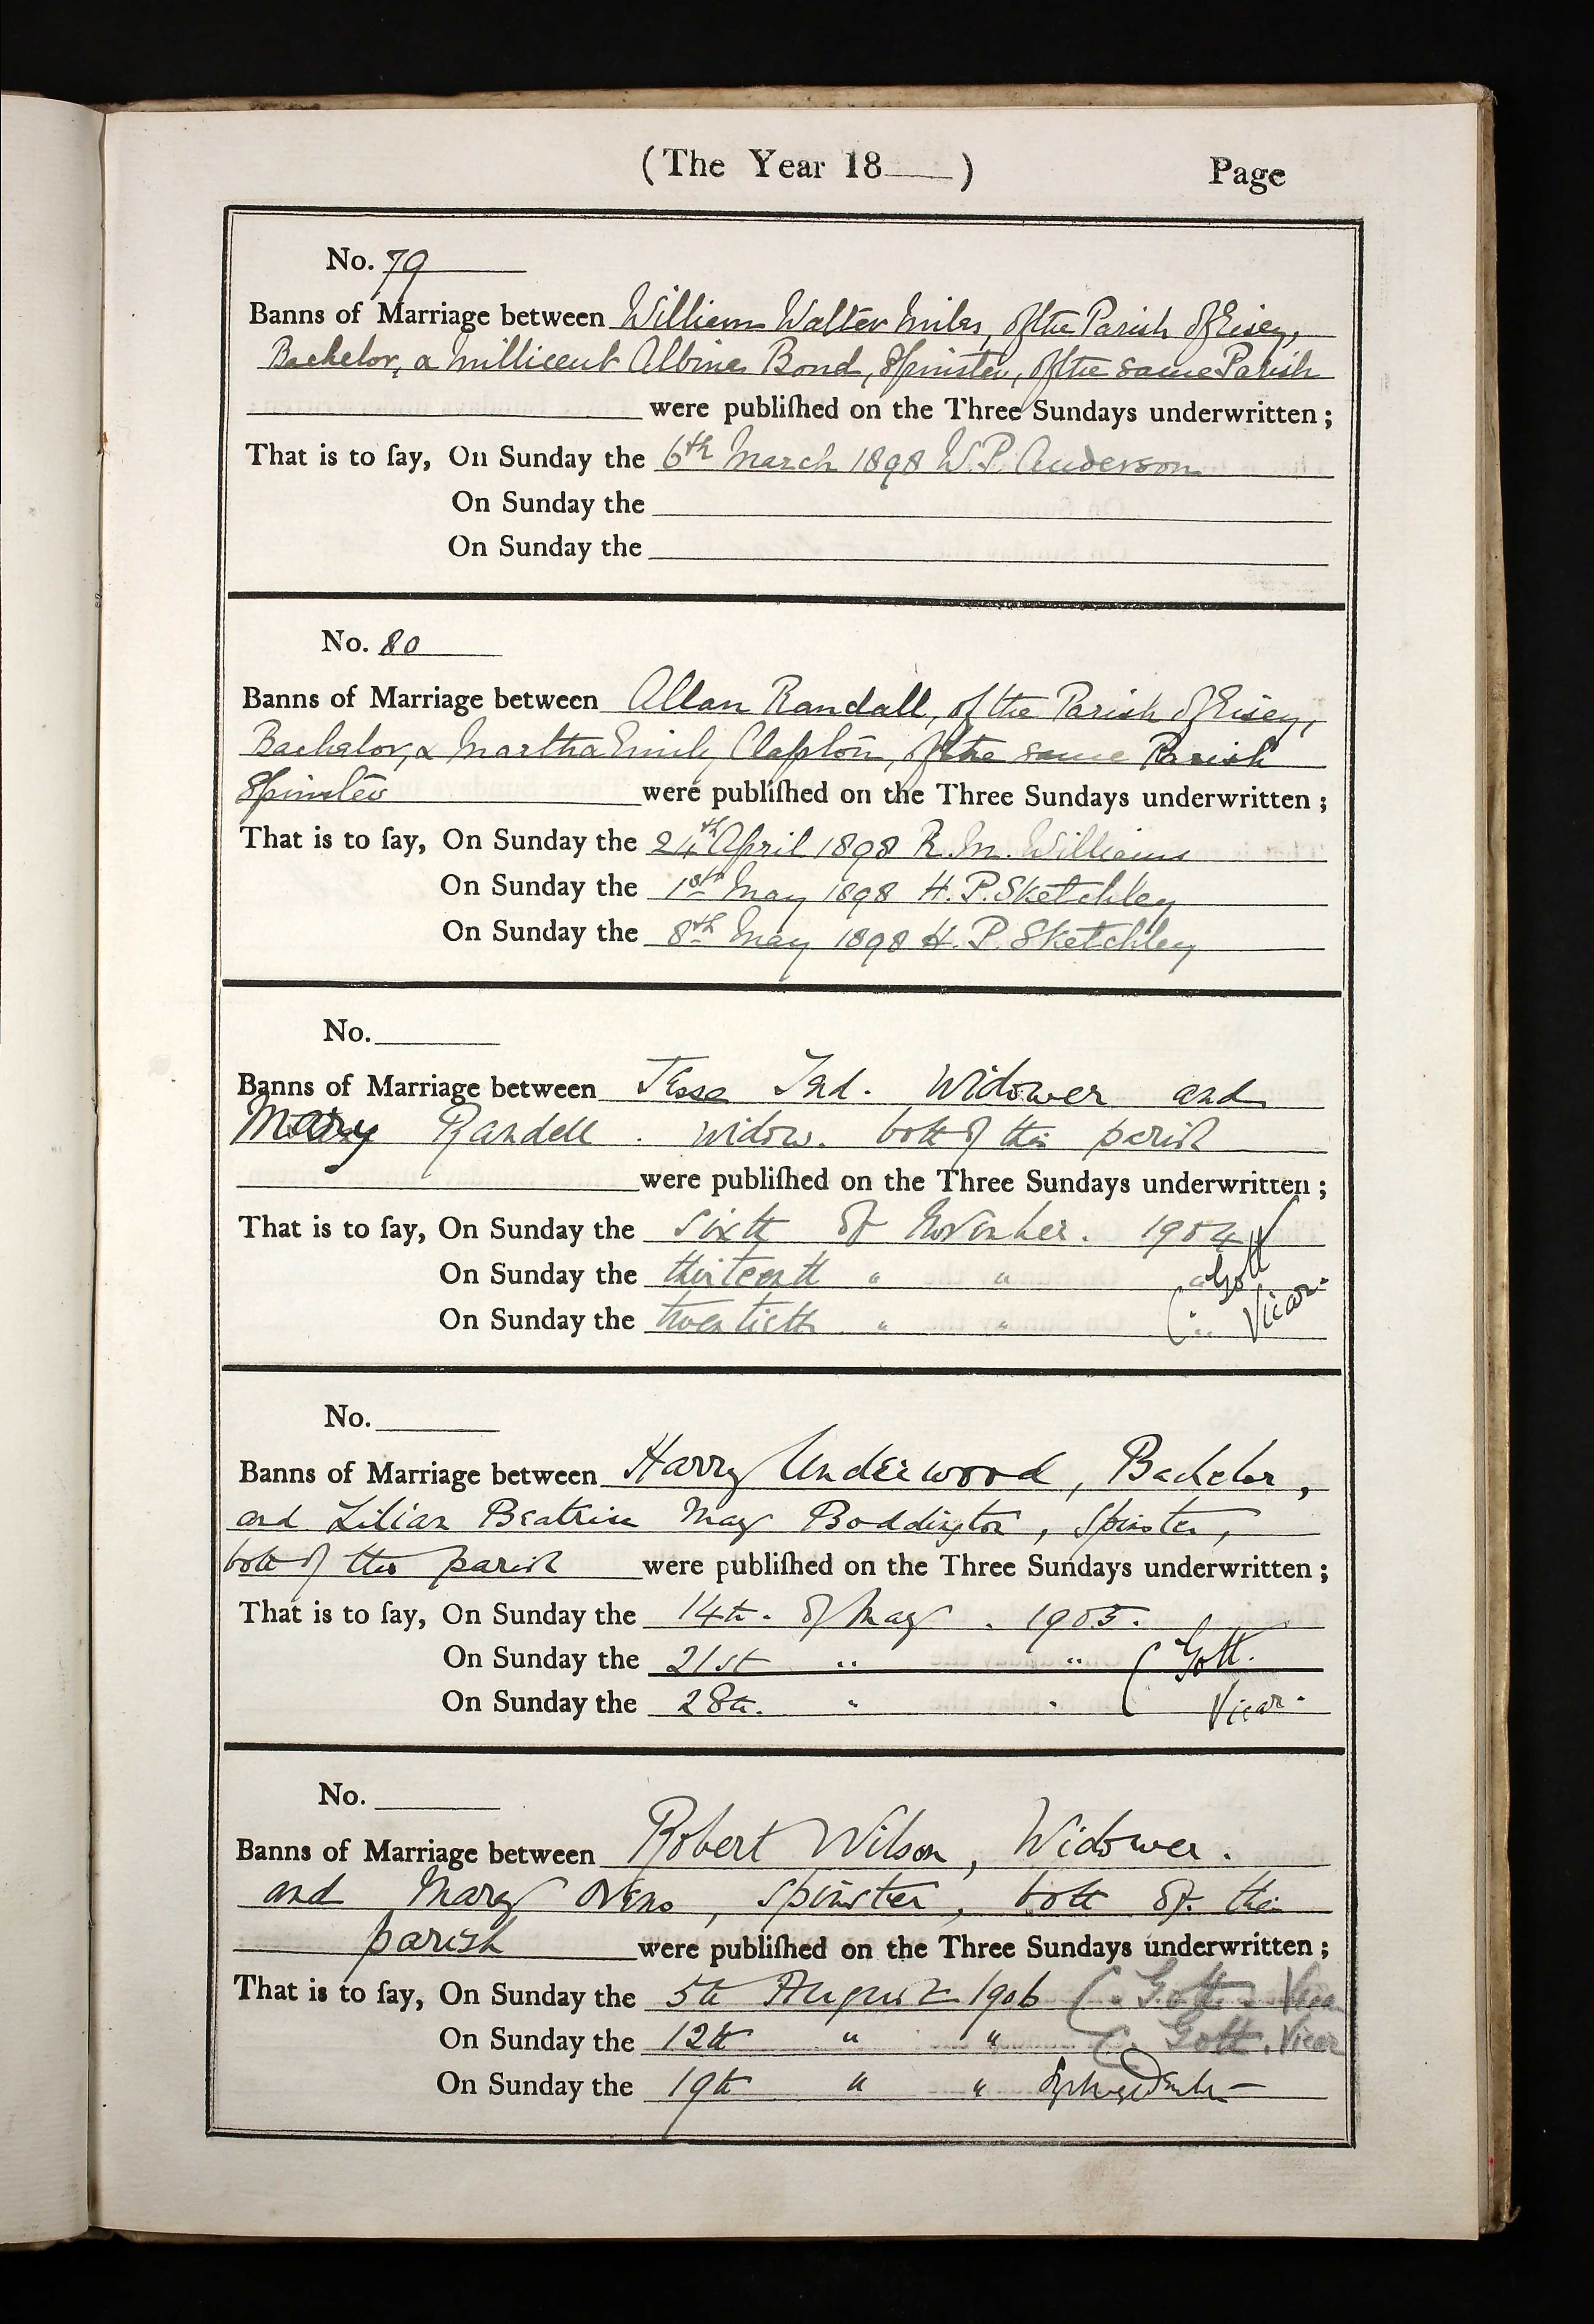 (The Year 18 )
Page
No. 79
Banns of Marriage between William Walter Miles, of the Parish of Eisey,
Bachelor, & Millicent Albina Bond, Spinster, of the same Parish
were publiſhed on the Three Sundays underwritten ;
That is to ſay, On Sunday the 6th March 1898 W. P. Anderson
On Sunday the
On Sunday the
No. 80
Banns of Marriage between Allan Randall, of the Parish of Eisey,
Bachelor, & Martha Emily Clapton, of the same Parish
Spinster were publiſhed on the Three Sundays underwritten ;
That is to ſay, On Sunday the 24th April 1898 R. M. Williams
On Sunday the 1st May 1898 H. P. Sketchley
On Sunday the 8th May 1898 H. P. Sketchley
No.
Banns of Marriage between Jesse Widower and
Mary Randell . widow. both of this parish
were publiſhed on the Three Sundays underwritten ;
That is to ſay, On Sunday the sixth of November. 1904
On Sunday the thirteenth " " Gott
On Sunday the twentieth " " Vicar.
No.
Banns of Marriage between Harry Underwood, Bachelor,
and Lilian Beatrice May Boddington, Spinster,
both of this parish were publiſhed on the Three Sundays underwritten ;
That is to ſay, On Sunday the 14th. of May . 1905.
On Sunday the 21st " " C Gott.
On Sunday the 28th. " " Vicar.
No.
Banns of Marriage between Robert Wilson, Widower.
and Mary Ovens, spinster, both of this
parish were publiſhed on the Three Sundays underwritten ;
That is to ſay, On Sunday the 5th August 1906 C. Gott. Vicar
On Sunday the 12th " " C. Gott. Vicar
On Sunday the 19th " "